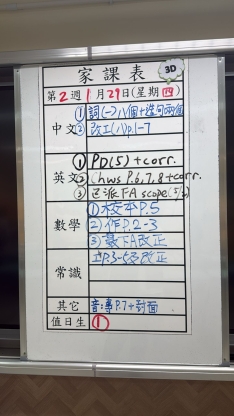 家課表 3D
第2週1月29日(星期四)
中文 ①詞(一)八個+造句兩個
②改工(八)p.1-7
英文 ①PD(5)+corr.
②hws P.6,7,8+corr.
③已派FA scope
數學 ①校本P.5
②作P.2-3
③最FA改正
常識 P.3-5改正
其它 音:事P.7+封面
值日生 ①